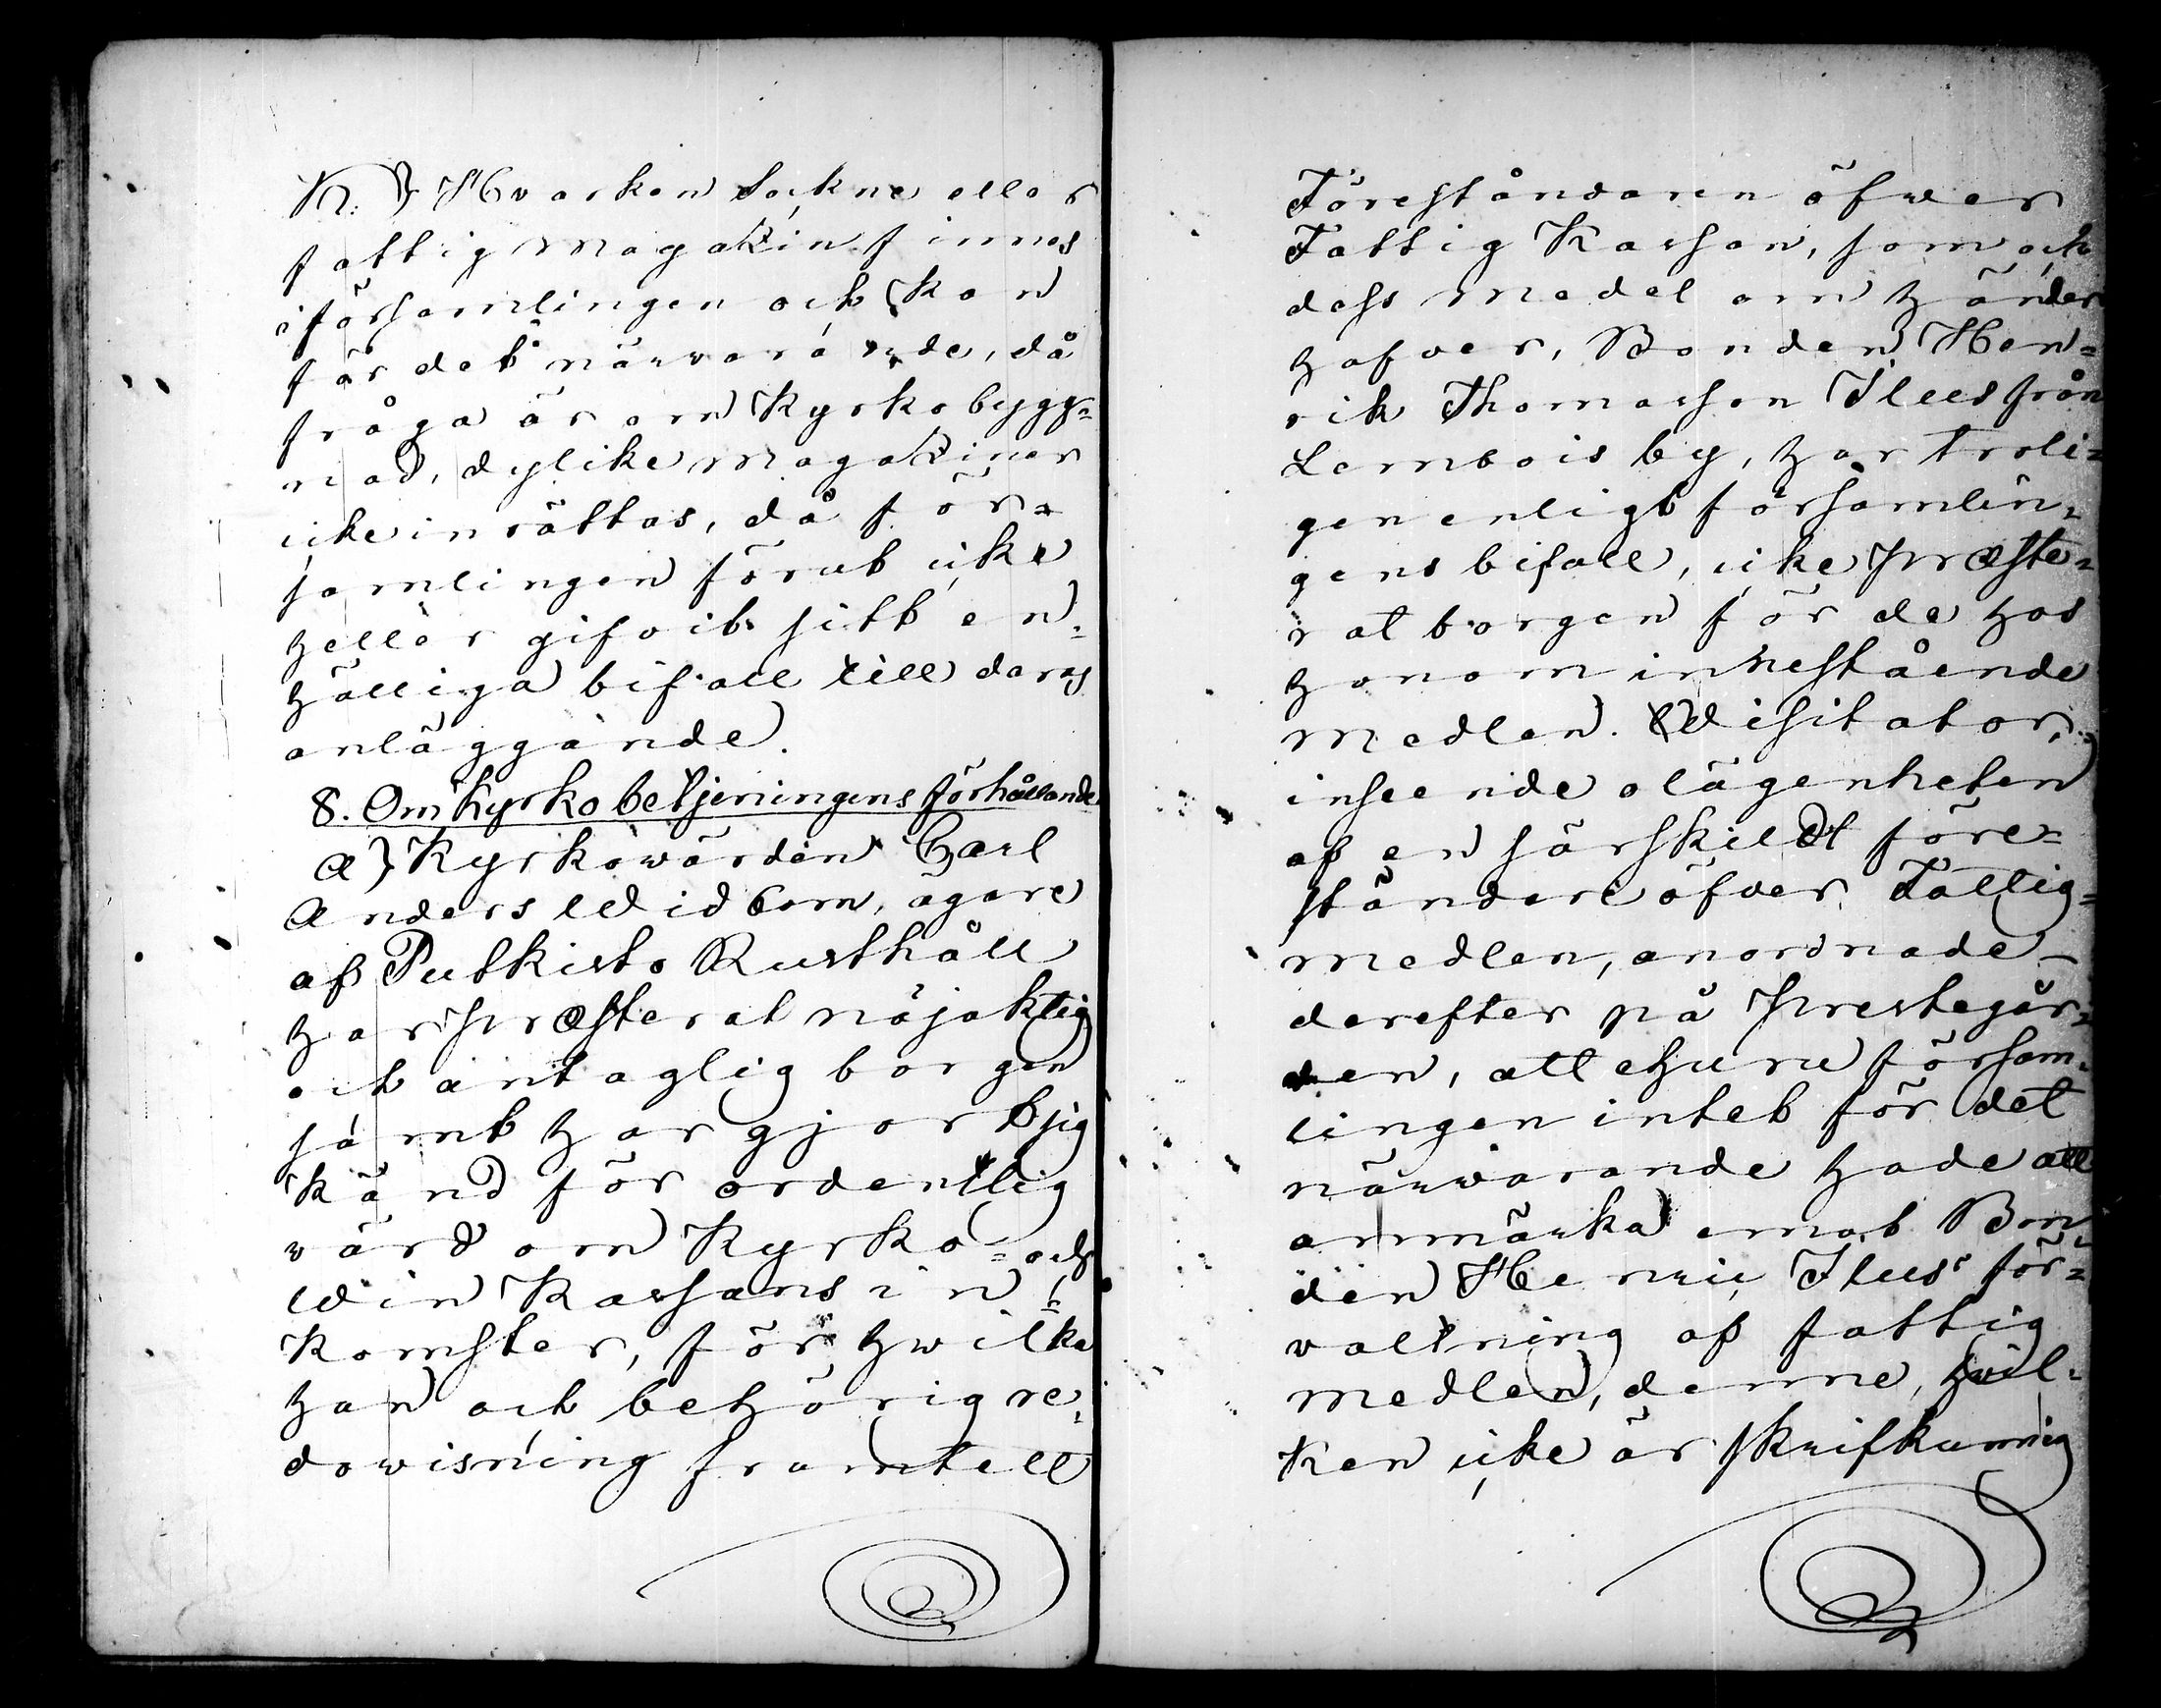 K.) Hvarken Sockne eller
fattig magaZin finnes
i församlingen och kan
för det närvarande, då
fråga är om Kyrkobygg=
nad, dylike magaZiner
icke inrättas, då för=
samlingen förut icke
heller gifvit sitt en=
hälliga bifall till deras
anläggande.
8. Om Kyrkobetjeningens förhållande
a) Kyrkowärden Carl
Anders Widbom, ägare
af Putkisto Rusthåll
har præsterat nöjaktig
och antaglig borgen
samt har gjort sig
känd för ordentlig
vård om Kyrko= och
Win Kassans in=
Komster, för hwilka
han och behörig re=
dovisning framtell
Föreståndaren öfwer
Fattig Kassan, som och
dess medel om händer
hafver, Bonden Hen=
rik Thomasson Flees från
Lembois by, har troli=
gen enligt församlin=
gens bifall, icke præste=
rat borgen för de hos
honom innestående
medlen. Visitator,
inseende olägenheten
af en särskildt före=
ståndare öfver Fattig=
medlen, anordnade
derefter på Prestegår=
den, att ehuru försam=
lingen intet för det
närwarande hade att
anmärka emot Bon=
den Henric Flees för=
valtning af fattig
medlen, denne, hvil=
ken icke är skrifkunnig